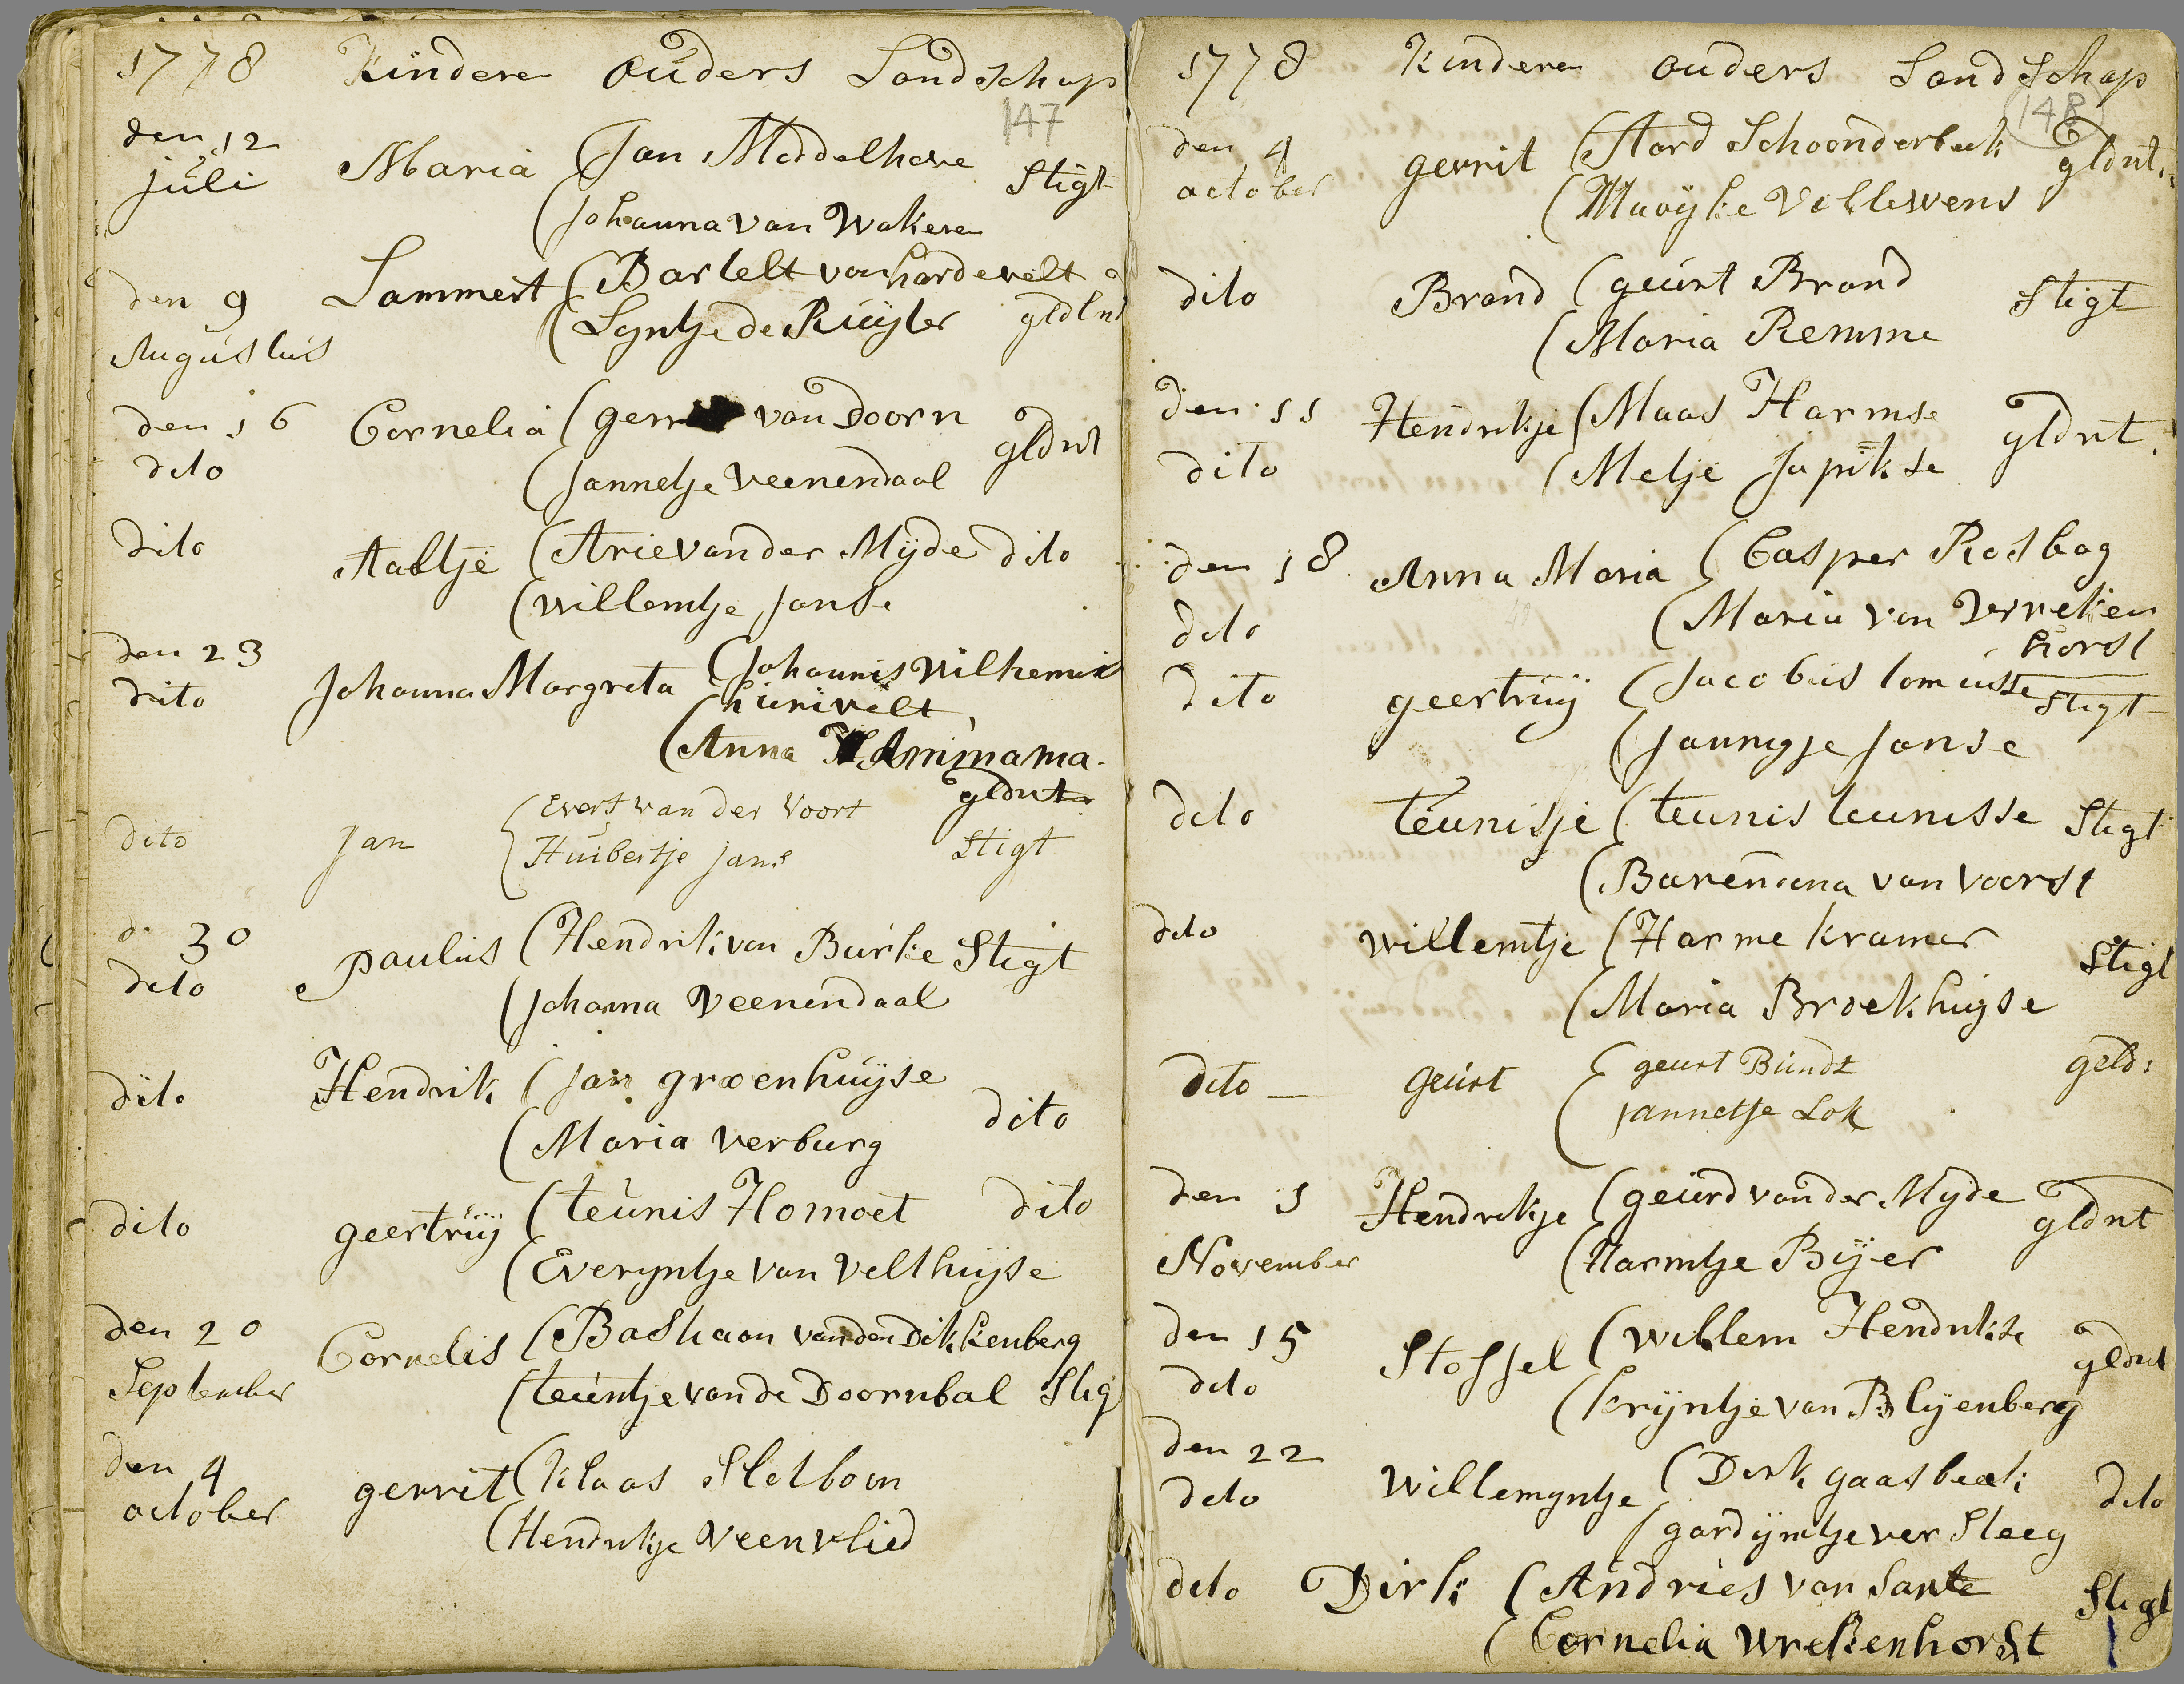 1778 Kindere ouders Landschap
147
den 12 juli Maria (Jan Middelhove Stigt
(Johanna van Wakere
den 9 Augustus Lammert (Bartelt van hardevelt
(Lyntje de Ruijter gldlnt
den 16 dito Cornelia (gerrit van Doorn gldnt
(Jannetje veenendaal
dito Aaltje (Arie van der Mijde dito
(willemtje Janse
den 23 dito Johanna Margreta (Johannis Wilhemis
hunivelt
(Anna Ammama
gldnt
dito Jan (Evert van der Voort
(Huibertje Jans Stigt
d 30 dito paulus (Hendrik van Burke Stigt
(Johanna Veenendaal
dito Hendrik (Jan groenhuijse
(Maria verburg dito
dito geertruij (teunis Homoet dito
(Everyntje van velthuijse
den 20 September Cornelis (Bastiaan van den Dikkenberg
(teuntje van de Doornbal Stigt
den 4 october gerrit (Klaas Slotboom
(Hendrikje veenvlied
1778 Kindere ouders Landschap
148
den 4 october gerrit (Aard Schoonderbeek gldnt
(Maayke Vellewens
dito Brand (geurt Brand Stigt
(Maria Remme
den 11 dito Hendrikje (Maas Harmse gldnt
(Metje Japikse
den 18 dito Anna Maria (Casper Rosbag
(Maria van Vrreken
horst
dito geertruij (Jacobus lomusse Stigt
(Janngje Janse
dito Teunisje (teunis teunisse Stigt
(Barendina van voorst
dito willemtje (Harme kramer Stigt
(Maria Broekhuyse
dito geurt (geurt Bundt geld:
(Jannetje Lok
den 1 November Hendrikje (geurd van der Mijde gldnt
(Harmtje Bijer
den 15 dito Stoffel (willem Hendrikse gldnt
(krijntje van Blijenberg
den 22 dito Willemyntje (Dirk gaasbeek dito
(gardijntje ver Steeg
dito Dirk (Andries van Sante Stigt
(Cornelia wrekenhorst